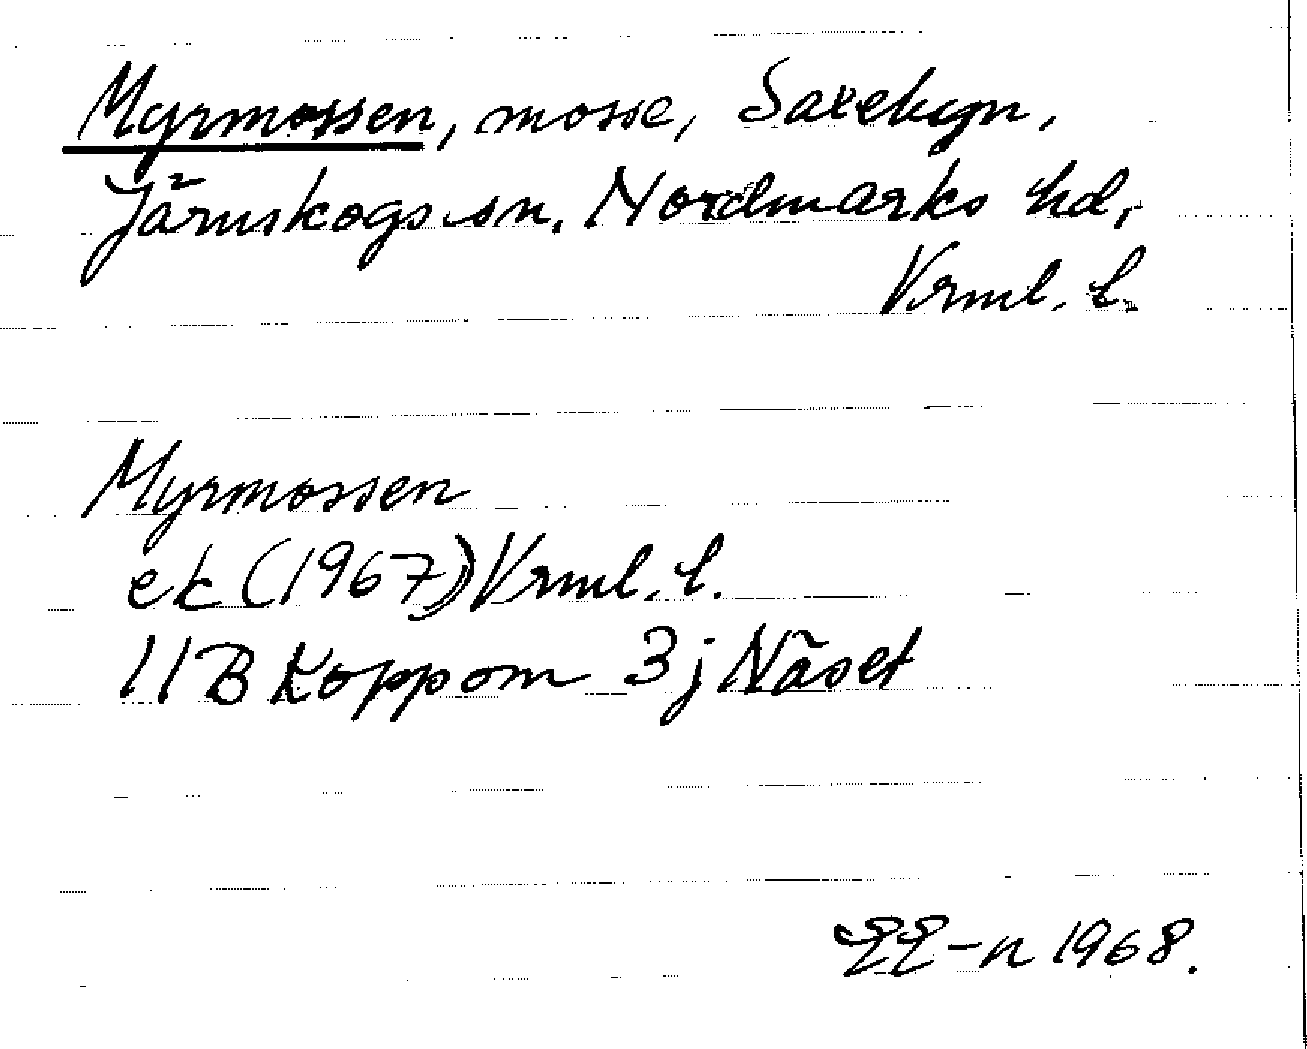 Myrmossen, mosse, Saxebyn,
Järnskogs sn. Nordmarks hd,
Vrml. l.
Myrmossen
ek (1967) Vrml. l.
11B Koppom 3j Näset
EE-n 1968.